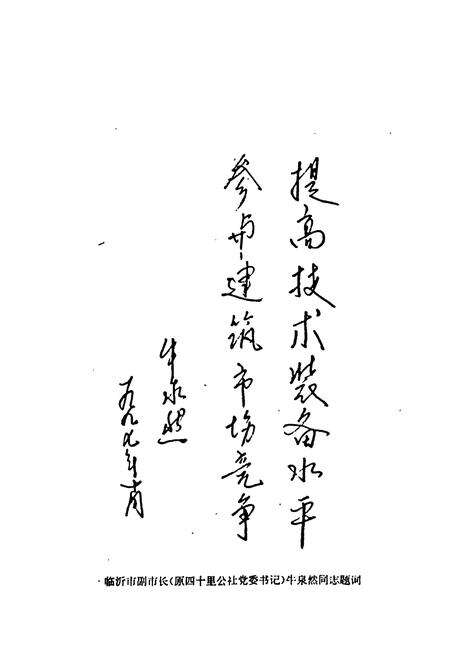 提高技术装备水平
参与建筑市场竞争
牛泉然
一九九七年
临沂市副市长(原四十里公社党委书记)牛泉然同志题词